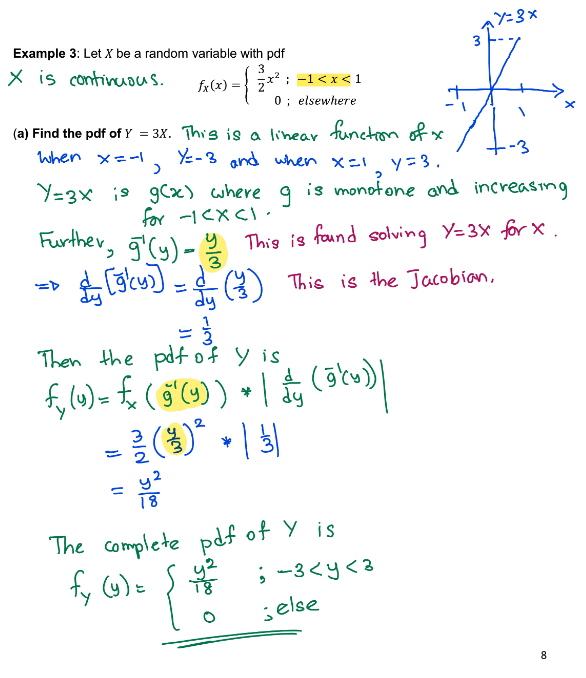 Y=3x
3
-1
1
x
-3
Example 3: Let X be a random variable with pdf
X is continuous.
f_X(x) = { 3/2 x² ; −1 < x < 1
0 ; elsewhere
(a) Find the pdf of Y = 3X. This is a linear function of x
When x=-1, Y=-3 and when x=1, y=3.
Y=3x is g(x) where g is monotone and increasing
for -1<x<1.
Further, g⁻¹(y) = y/3 This is found solving Y=3x for x.
⇒ d/dy [g⁻¹(y)] = d/dy (y/3) This is the Jacobian.
= 1/3
Then the pdf of Y is
f_Y(y) = f_X (g⁻¹(y)) * | d/dy (g⁻¹(y)) |
= 3/2 (y/3)² * | 1/3 |
= y²/18
The complete pdf of Y is
f_Y(y) = { y²/18 ; -3<y<3
0 ; else
8